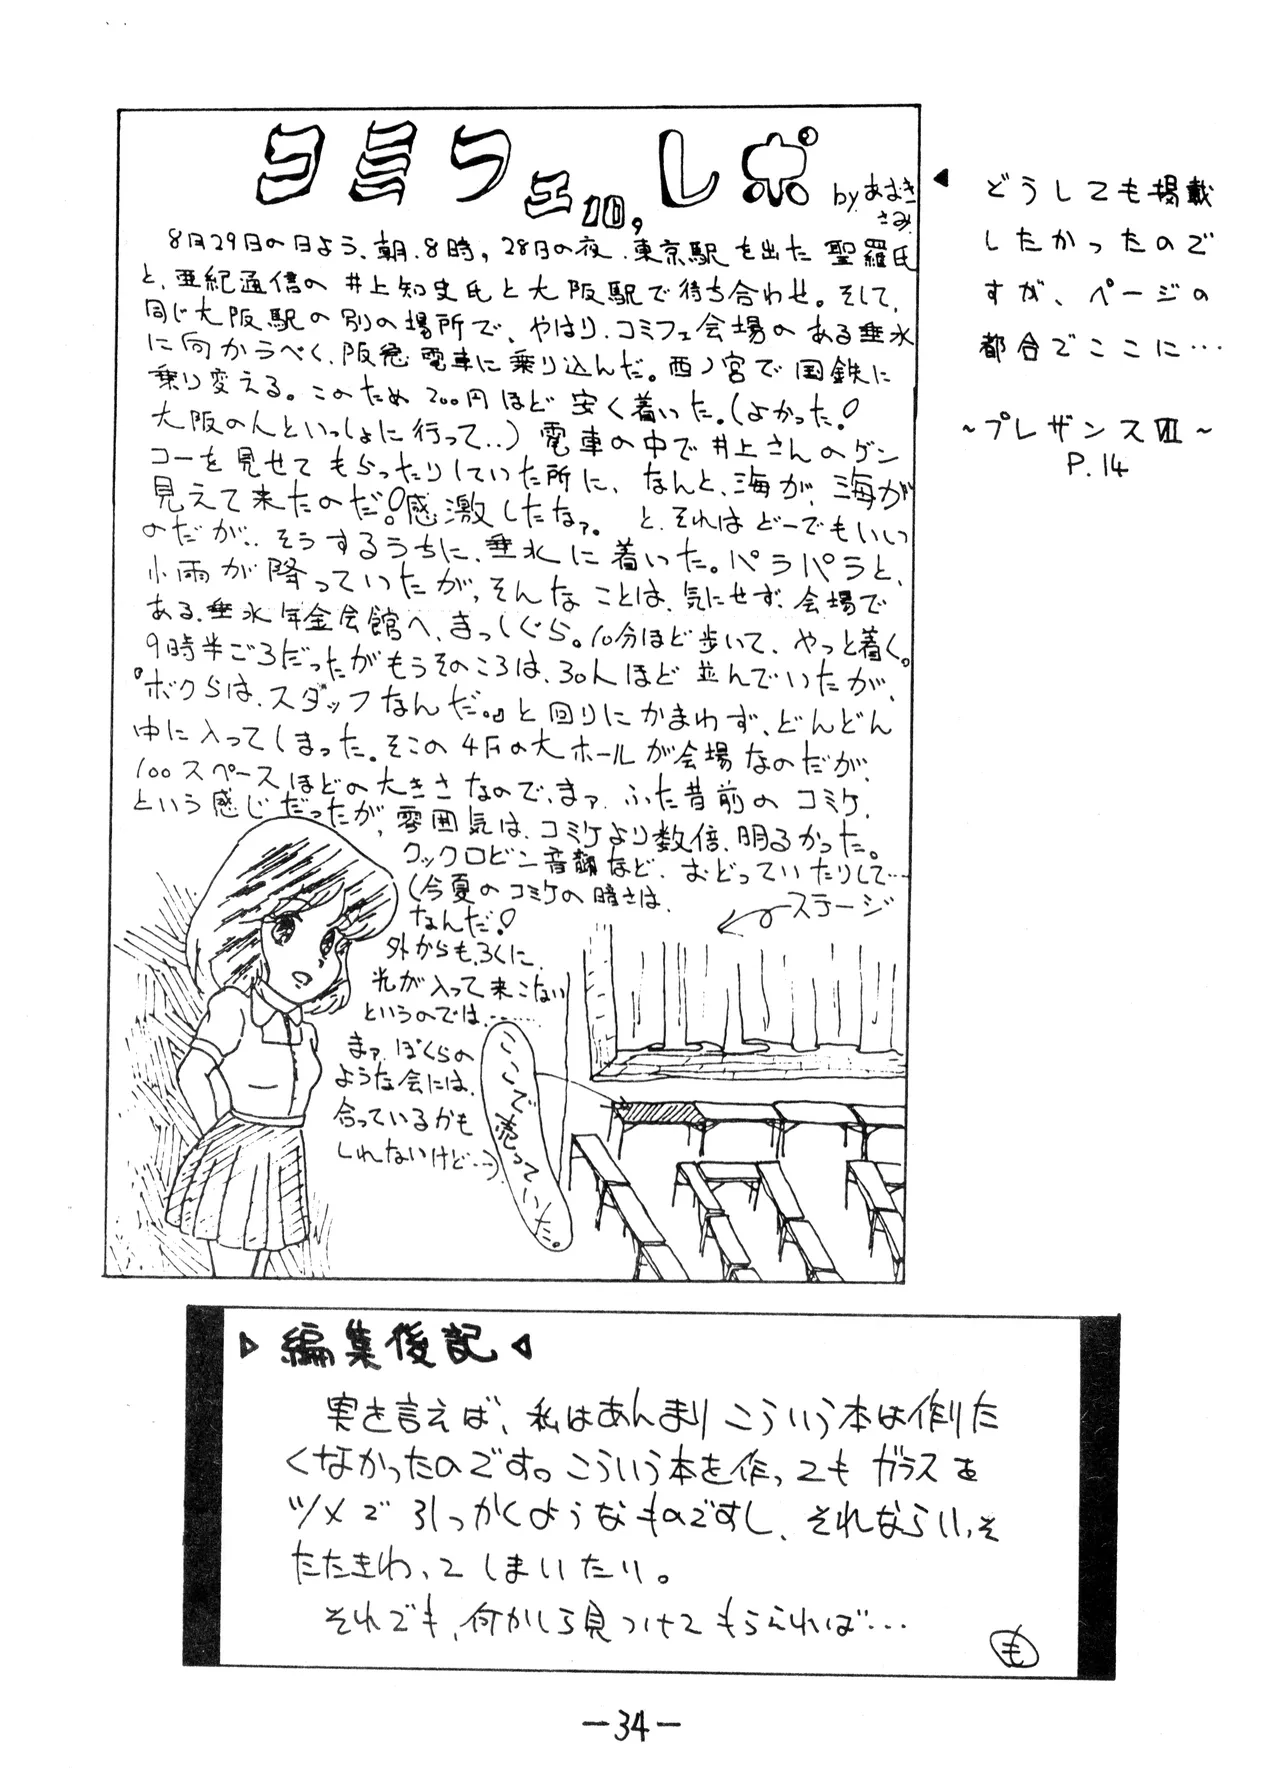 コミフェ10,レポ by あむき
さみ
8月29日の日よう、朝、8時、28日の夜、東京駅を出た聖羅氏
と、亜紀通信の井上知史氏と大阪駅で待ち合わせ。そして、
同じ大阪駅の別の場所で、やはり、コミフェ会場のある垂水
に向かうべく、阪急電車に乗り込んだ。西ノ宮で国鉄に
乗り変える。このため200円ほど安く着いた。(よかった!
大阪の人といっしょに行って‥)電車の中で井上さんのゲン
コーを見せてもらったりしていた所に、なんと、海が、海が
見えて来たのだ!感激したなァ。と、それはどーでもいい
のだが、そうするうちに、垂水に着いた。パラパラと、
小雨が降っていたが、そんなことは、気にせず、会場で
ある、垂水年金会館へ、まっしぐら。10分ほど歩いて、やっと着く。
9時半ごろだったがもうそのころは、30人ほど並んでいたが、
『ボクらは、スタッフなんだ。』と回りにかまわず、どんどん
中に入ってしまった。そこの4Fの大ホールが会場なのだが、
100スペースほどの大きさなので、まァ、ふた昔前のコミケ、
という感じだったが、雰囲気は、コミケより数倍、明るかった。
クックロビン音頭など、おどっていたりして…
(今夏のコミケの暗さは、
なんだ!
外からも、ろくに、
光が入って来こない
というのでは、……
まァ、ぼくらの
ような会には、
合っているかも
しれないけど…)
ステージ
ここで売っていた。
◀ どうしても掲載
したかったので
すが、ページの
都合でここに…
~プレザンスⅦ~
P.14
▷編集後記◁
実を言えば、私はあんまりこういう本は作りた
くなかったのです。こういう本を作ってもガラスを
ツメで引っかくようなものですし、それならいっそ
たたきわってしまいたい。
それでも、何かしら見つけてもらえれば…
も
－34－